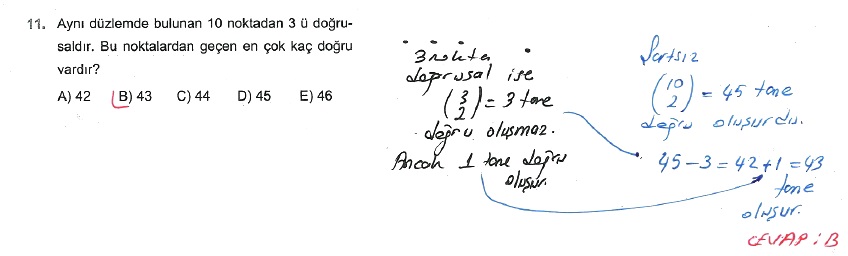 11. Aynı düzlemde bulunan 10 noktadan 3 ü doğru-
saldır. Bu noktalardan geçen en çok kaç doğru
vardır?
A) 42 B) 43 C) 44 D) 45 E) 46
3 nokta
doğrusal ise
(3 2) = 3 tane
doğru oluşmaz.
Ancak 1 tane doğru
oluşur.
Şartsız
(10 2) = 45 tane
doğru oluşurdu.
45-3=42+1=43
tane
oluşur.
CEVAP: B